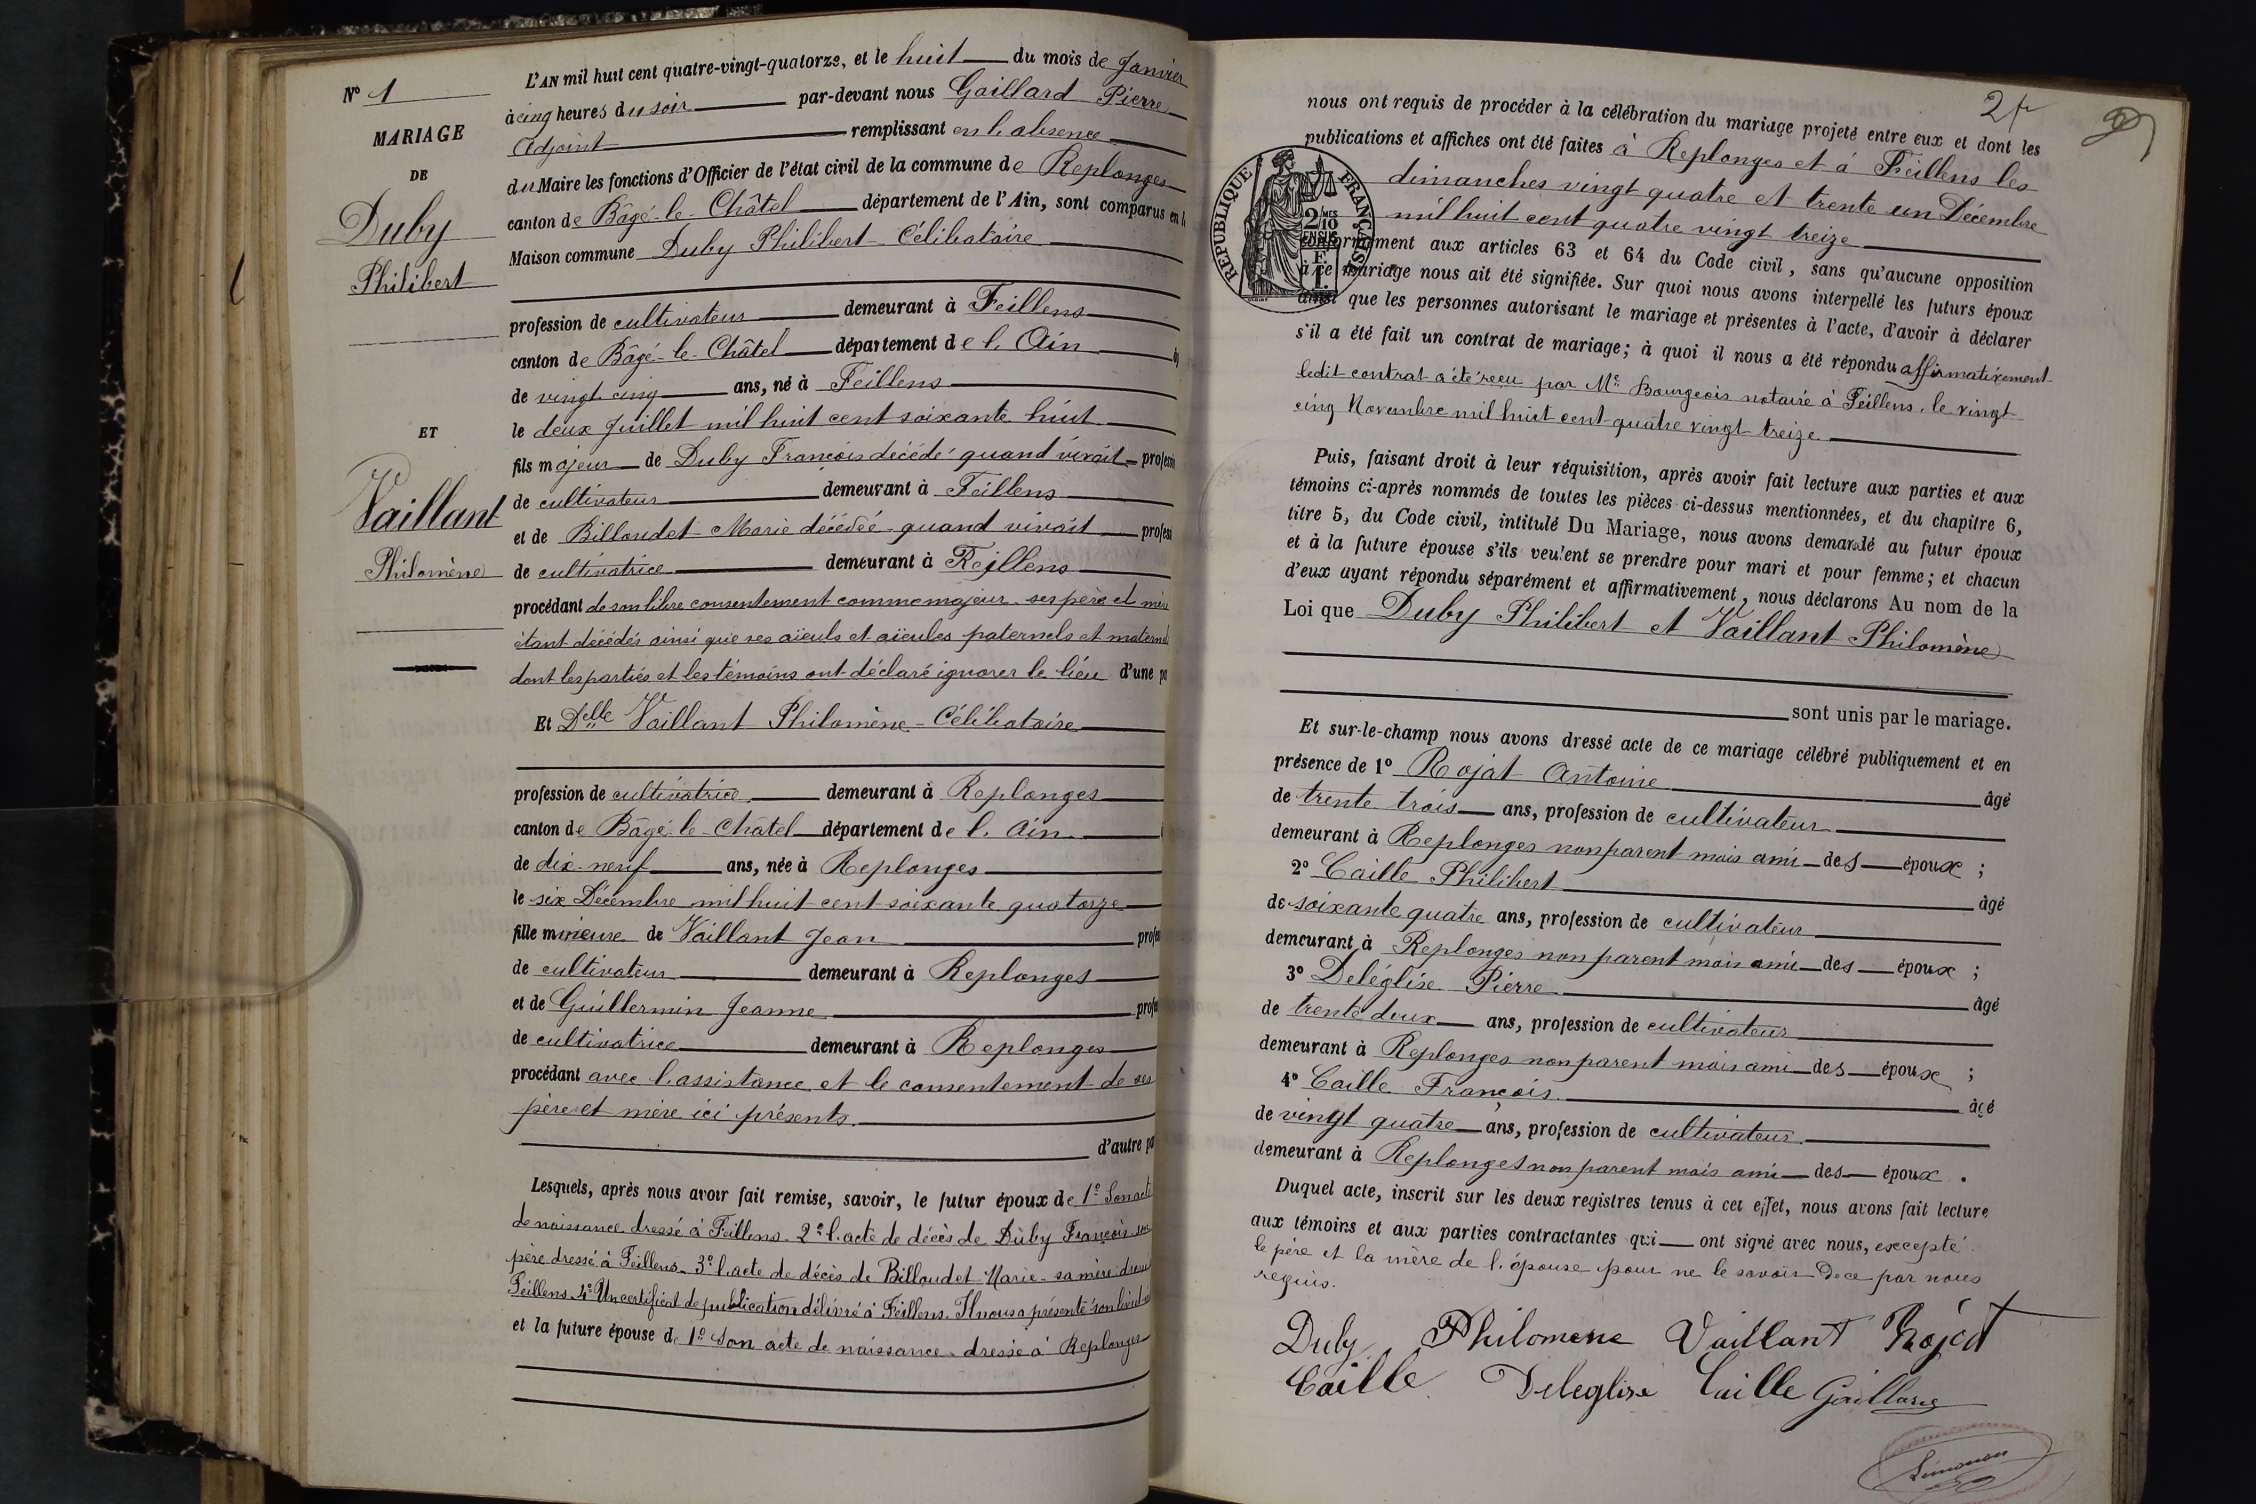 N° 1
MARIAGE
DE
Duby
Philibert
ET
Vaillant
Philomène
L'AN mil huit cent quatre-vingt-quatorze, et le huit du mois de Janvier
à cinq heures du soir par-devant nous Gaillard Pierre
Adjoint remplissant en l'absence
du Maire les fonctions d'Officier de l'état civil de la commune de Replonges
canton de Bâgé-le-Châtel département de l'Ain, sont comparus en la
Maison commune Duby Philibert Célibataire
profession de cultivateur demeurant à Feillens
canton de Bâgé-le-Châtel département de l'Ain
de vingt cinq ans, né à Feillens
le deux Juillet mil huit cent soixante huit
fils majeur de Duby François décédé quand vivait profession
de cultivateur demeurant à Feillens
et de Billoudet Marie décédée quand vivait profess
de cultivatrice demeurant à Feillens
procédant de son libre consentement comme majeur ses père et mère
étant décédés ainsi que ses aïeuls et aïeules paternels et maternels
dont les parties et les témoins ont déclaré ignorer le lieu d'une pa
Et Delle Vaillant Philomène - Célibataire
profession de cultivatrice demeurant à Replonges
canton de Bâgé-le-Châtel département de l'Ain
de dix-neuf ans, née à Replonges
le six Décembre mil huit cent soixante quatorze
fille mineure de Vaillant Jean profes
de cultivateur demeurant à Replonges
et de Guillermin Jeanne profe
de cultivatrice demeurant à Replonges
procédant avec l'assistance et le consentement de ses
père et mère ici présents.
d'autre pa
Lesquels, après nous avoir fait remise, savoir, le futur époux de 1° Son acte
de naissance dressé à Feillens 2° l'acte de décès de Duby François son
père dressé à Feillens 3° l'acte de décès de Billoudet Marie sa mère dressé
Feillens 4° Un certificat de publication délivré à Feillens. Il nous a présenté son livret
et la future épouse de 1° Son acte de naissance dressé à Replonges
2f
nous ont requis de procéder à la célébration du mariage projeté entre eux et dont les
publications et affiches ont été faites à Replonges et à Feillens les
dimanches vingt quatre et trente un Décembre
mil huit cent quatre vingt treize
RÉPUBLIQUE FRANÇAISE
2/10 EN SUS
1 F.
conformément aux articles 63 et 64 du Code civil, sans qu'aucune opposition
à ce mariage nous ait été signifiée. Sur quoi nous avons interpellé les futurs époux
ainsi que les personnes autorisant le mariage et présentes à l'acte, d'avoir à déclarer
s'il a été fait un contrat de mariage; à quoi il nous a été répondu affirmativement
ledit contrat a été reçu par Me Bourgeois notaire à Feillens, le vingt
cinq Novembre mil huit cent quatre vingt treize
Puis, faisant droit à leur réquisition, après avoir fait lecture aux parties et aux
témoins ci-après nommés de toutes les pièces ci-dessus mentionnées, et du chapitre 6,
titre 5, du Code civil, intitulé Du Mariage, nous avons demandé au futur époux
et à la future épouse s'ils veulent se prendre pour mari et pour femme; et chacun
d'eux ayant répondu séparément et affirmativement, nous déclarons Au nom de la
Loi que Duby Philibert et Vaillant Philomène
sont unis par le mariage.
Et sur-le-champ nous avons dressé acte de ce mariage célébré publiquement et en
présence de 1° Rojat Antoine âgé
de trente trois ans, profession de cultivateur
demeurant à Replonges non parent mais ami des époux ;
2° Caille Philibert âgé
de soixante quatre ans, profession de cultivateur
demeurant à Replonges non parent mais ami des époux ;
3° Deléglise Pierre âgé
de trente deux ans, profession de cultivateur
demeurant à Replonges non parent mais ami des époux ;
4° Caille François âgé
de vingt quatre ans, profession de cultivateur
demeurant à Replonges non parent mais ami des époux .
Duquel acte, inscrit sur les deux registres tenus à cet effet, nous avons fait lecture
aux témoins et aux parties contractantes qui ont signé avec nous, excepté
le père et la mère de l'épouse pour ne le savoir de ce par nous
requis.
Duby Philomene Vaillant Rojat
Caille Deleglise Caille Gaillard